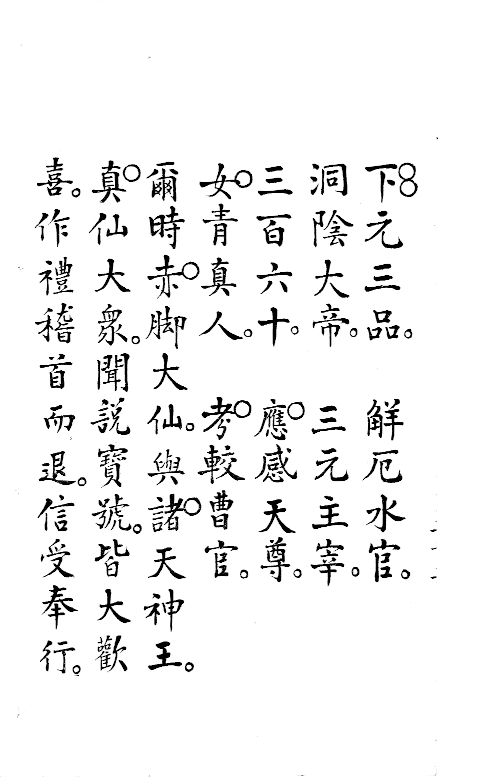 下元三品。 解厄水官。
洞陰大帝。 三元主宰。
三百六十。 應感天尊。
女青真人。 考較曹官。
爾時赤脚大仙。與諸天神王。
真仙大眾。聞說寶號。皆大歡
喜。作禮稽首而退。信受奉行。